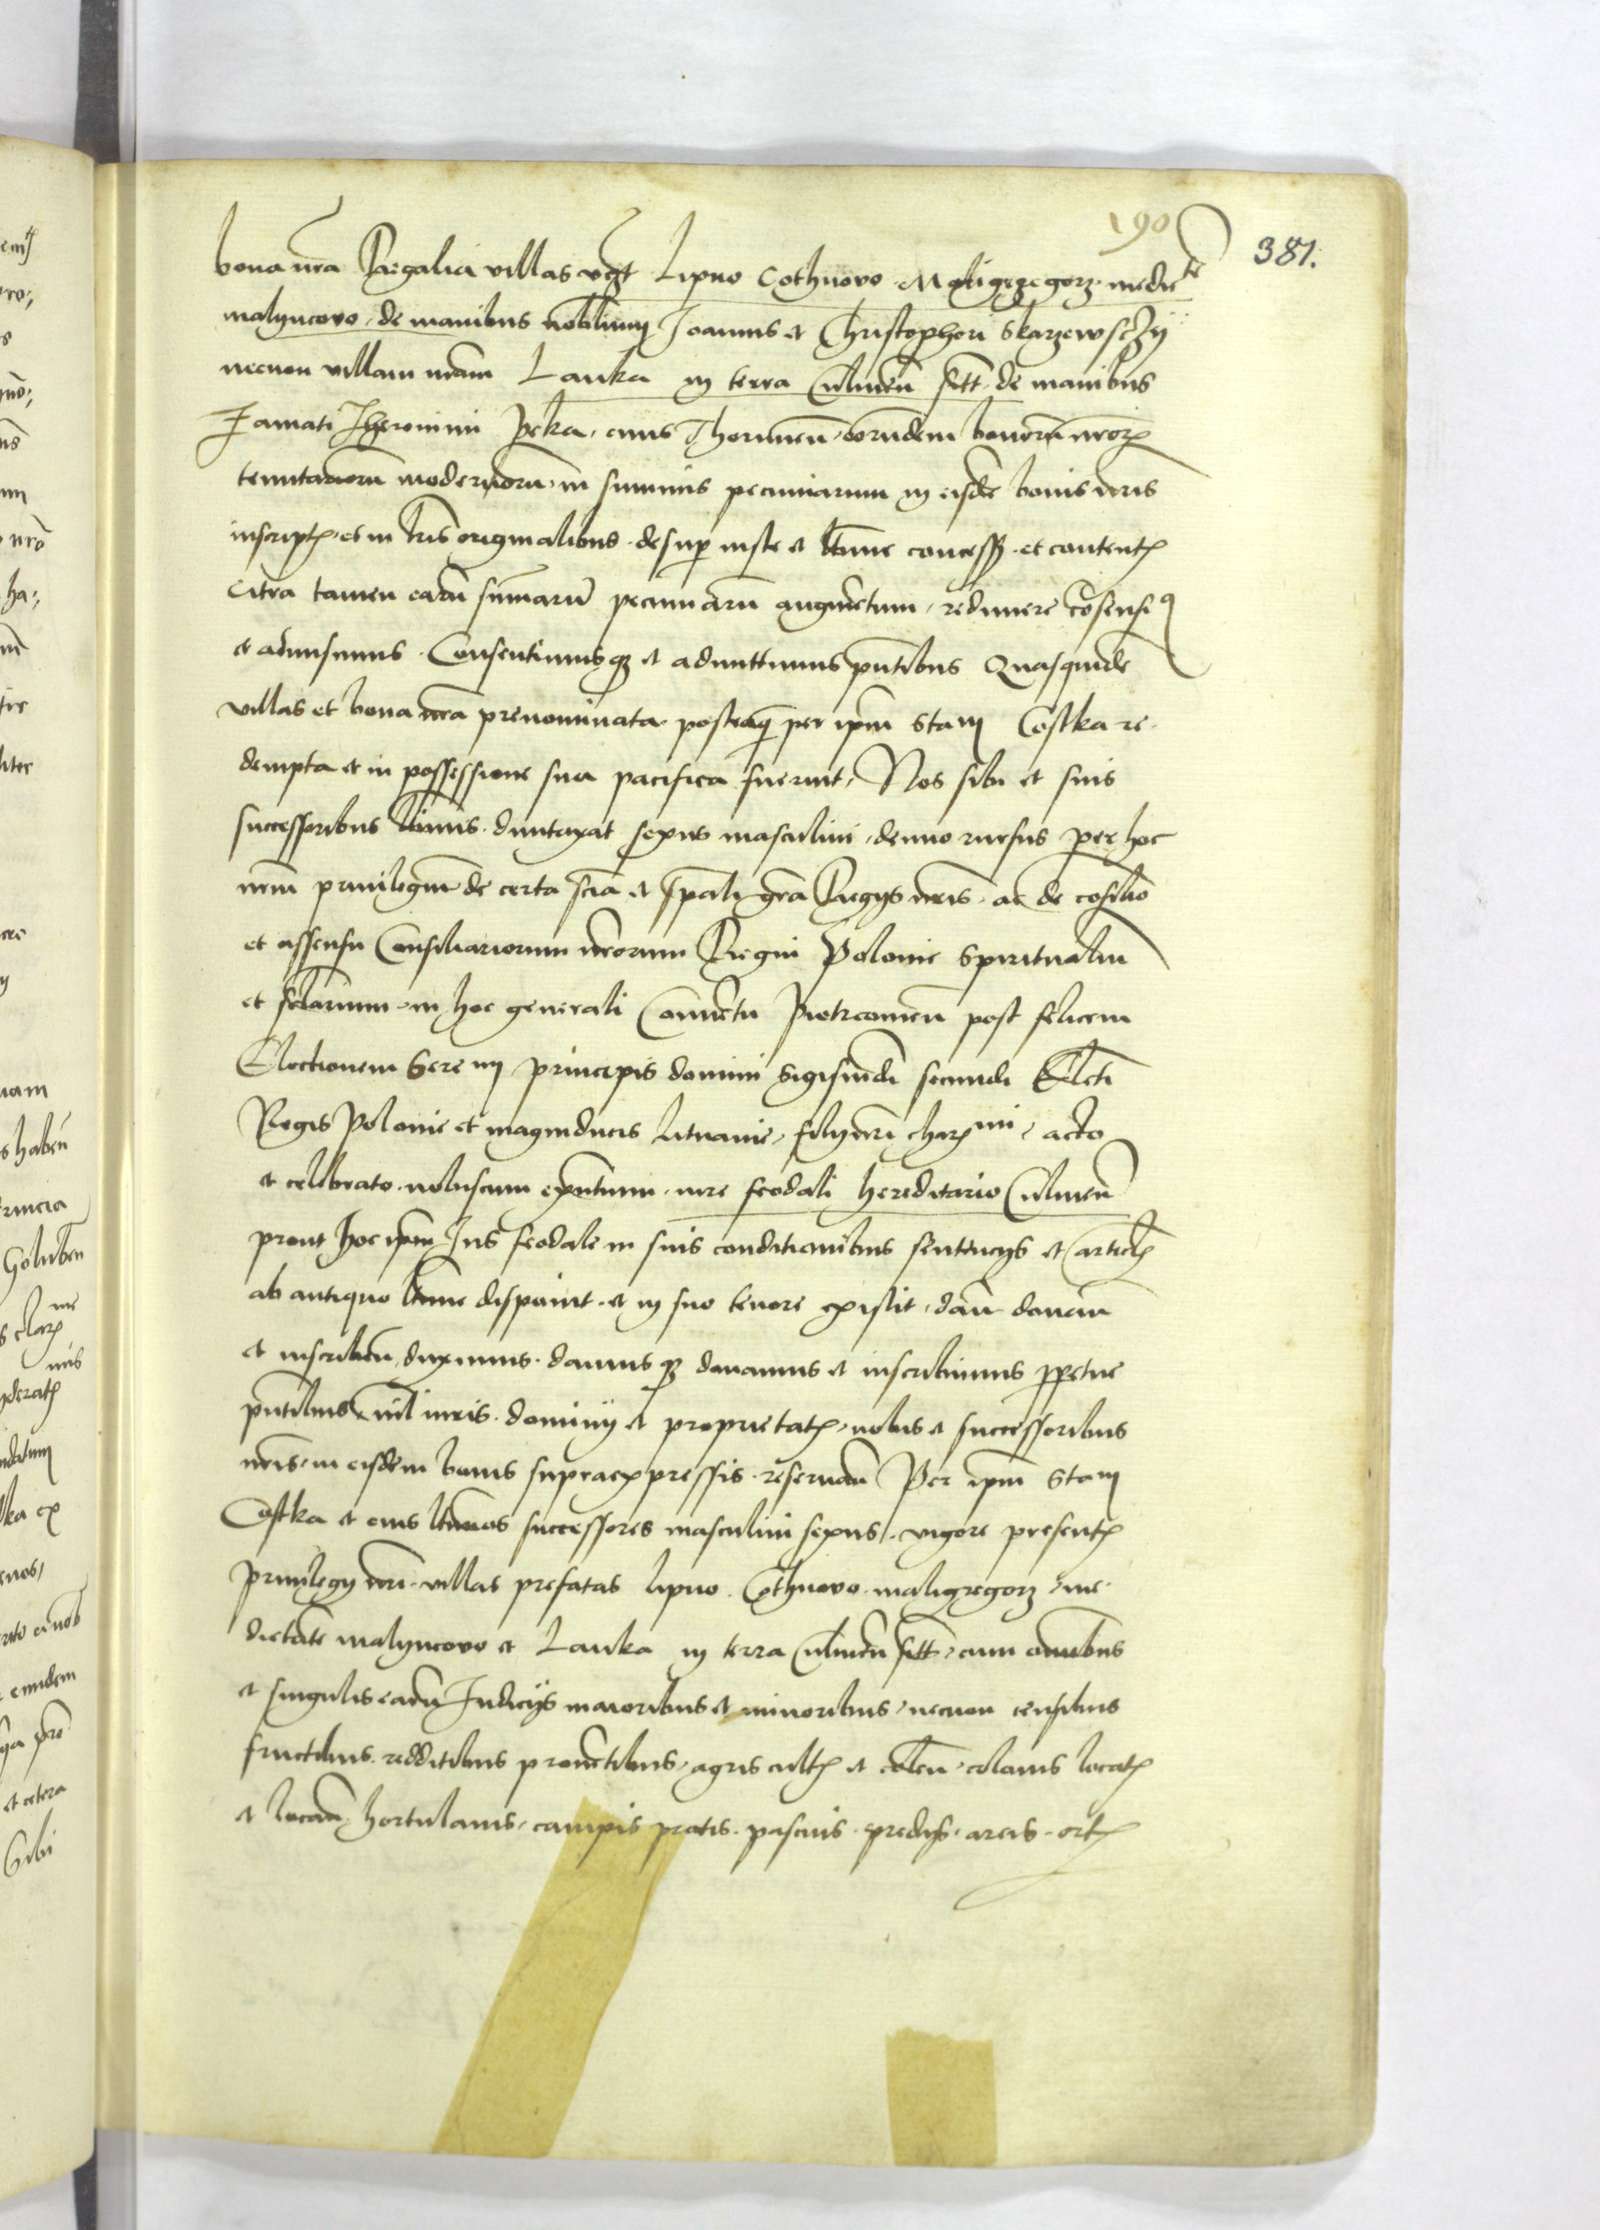 190
381.
bona nra Regalia villas vzt Lipno Cothnovo Maligrzegorz medie te
malyncovo, de manibus nobilium Joannis et Christophori Skarzewsczÿ
necnon villam nram Lanka in terra Culmen sitt. de manibus
Famati Jheronimi Peka, civis Thorunen, eorundem bonorum nror
tenutariorum modernorum, in summis pecuniarum in eisdem bonis nris
inscript, et in lris originalibus desup iuste et ltime concess et content
Citra tamen earum summarum pecuniarum augmentum, redimere consensi
et admisimus. Consentimusq et admittimus pntibus Quasquidem
villas et bona nra prenominata posteaq per ipm Stan Costka re-
dempta et in possessione sua pacifica fuerint, Nos sibi et suis
successoribus ltimis duntaxat sexus masculini, denuo rursus per hoc
nrm privilegium de certa scia et spali gra Regys nris, ac de cosilio
et assensu Consiliariorum nrorum Regni Polonie Spiritualium
et sclarium, in hoc generali Conventu Piotrcovien post felicem
Electionem Seremi principis domini Sigismdi secundi Elcti
Regis Polonie et magniducis Lituanie, filynri char mi, acto
et celebrato nobiscum exntium, iure feodali hereditario Culmen
prout hoc ipm Jus feodale in suis conditionibus sentencys et articl
ab antiquo ltime disponit et in suo tenore existit, dan donan
et inscriben duximus, damus q donamus et inscribimus ppetue
pntibus, nil iuris, dominÿ et proprietat, nobis et successoribus
nris, in eisdem bonis supraexpressis reservan Per ipm Stan
Costka et eius ltimos successores masculini sexus, vigore present
privilegy nri villas prefatas Lipno. Cothnovo. maligregorz, me-
dietate malyncovo et Lanka in terra Culmen sitt, cum omnibus
et singulis earum Judicÿs maioribus et minoribus, necnon censibus
fructibus redditibus proventibus, agris cult et colen, colonis locat
et locan, hortulanis, campis pratis. pascuis. predÿs. areis. ort